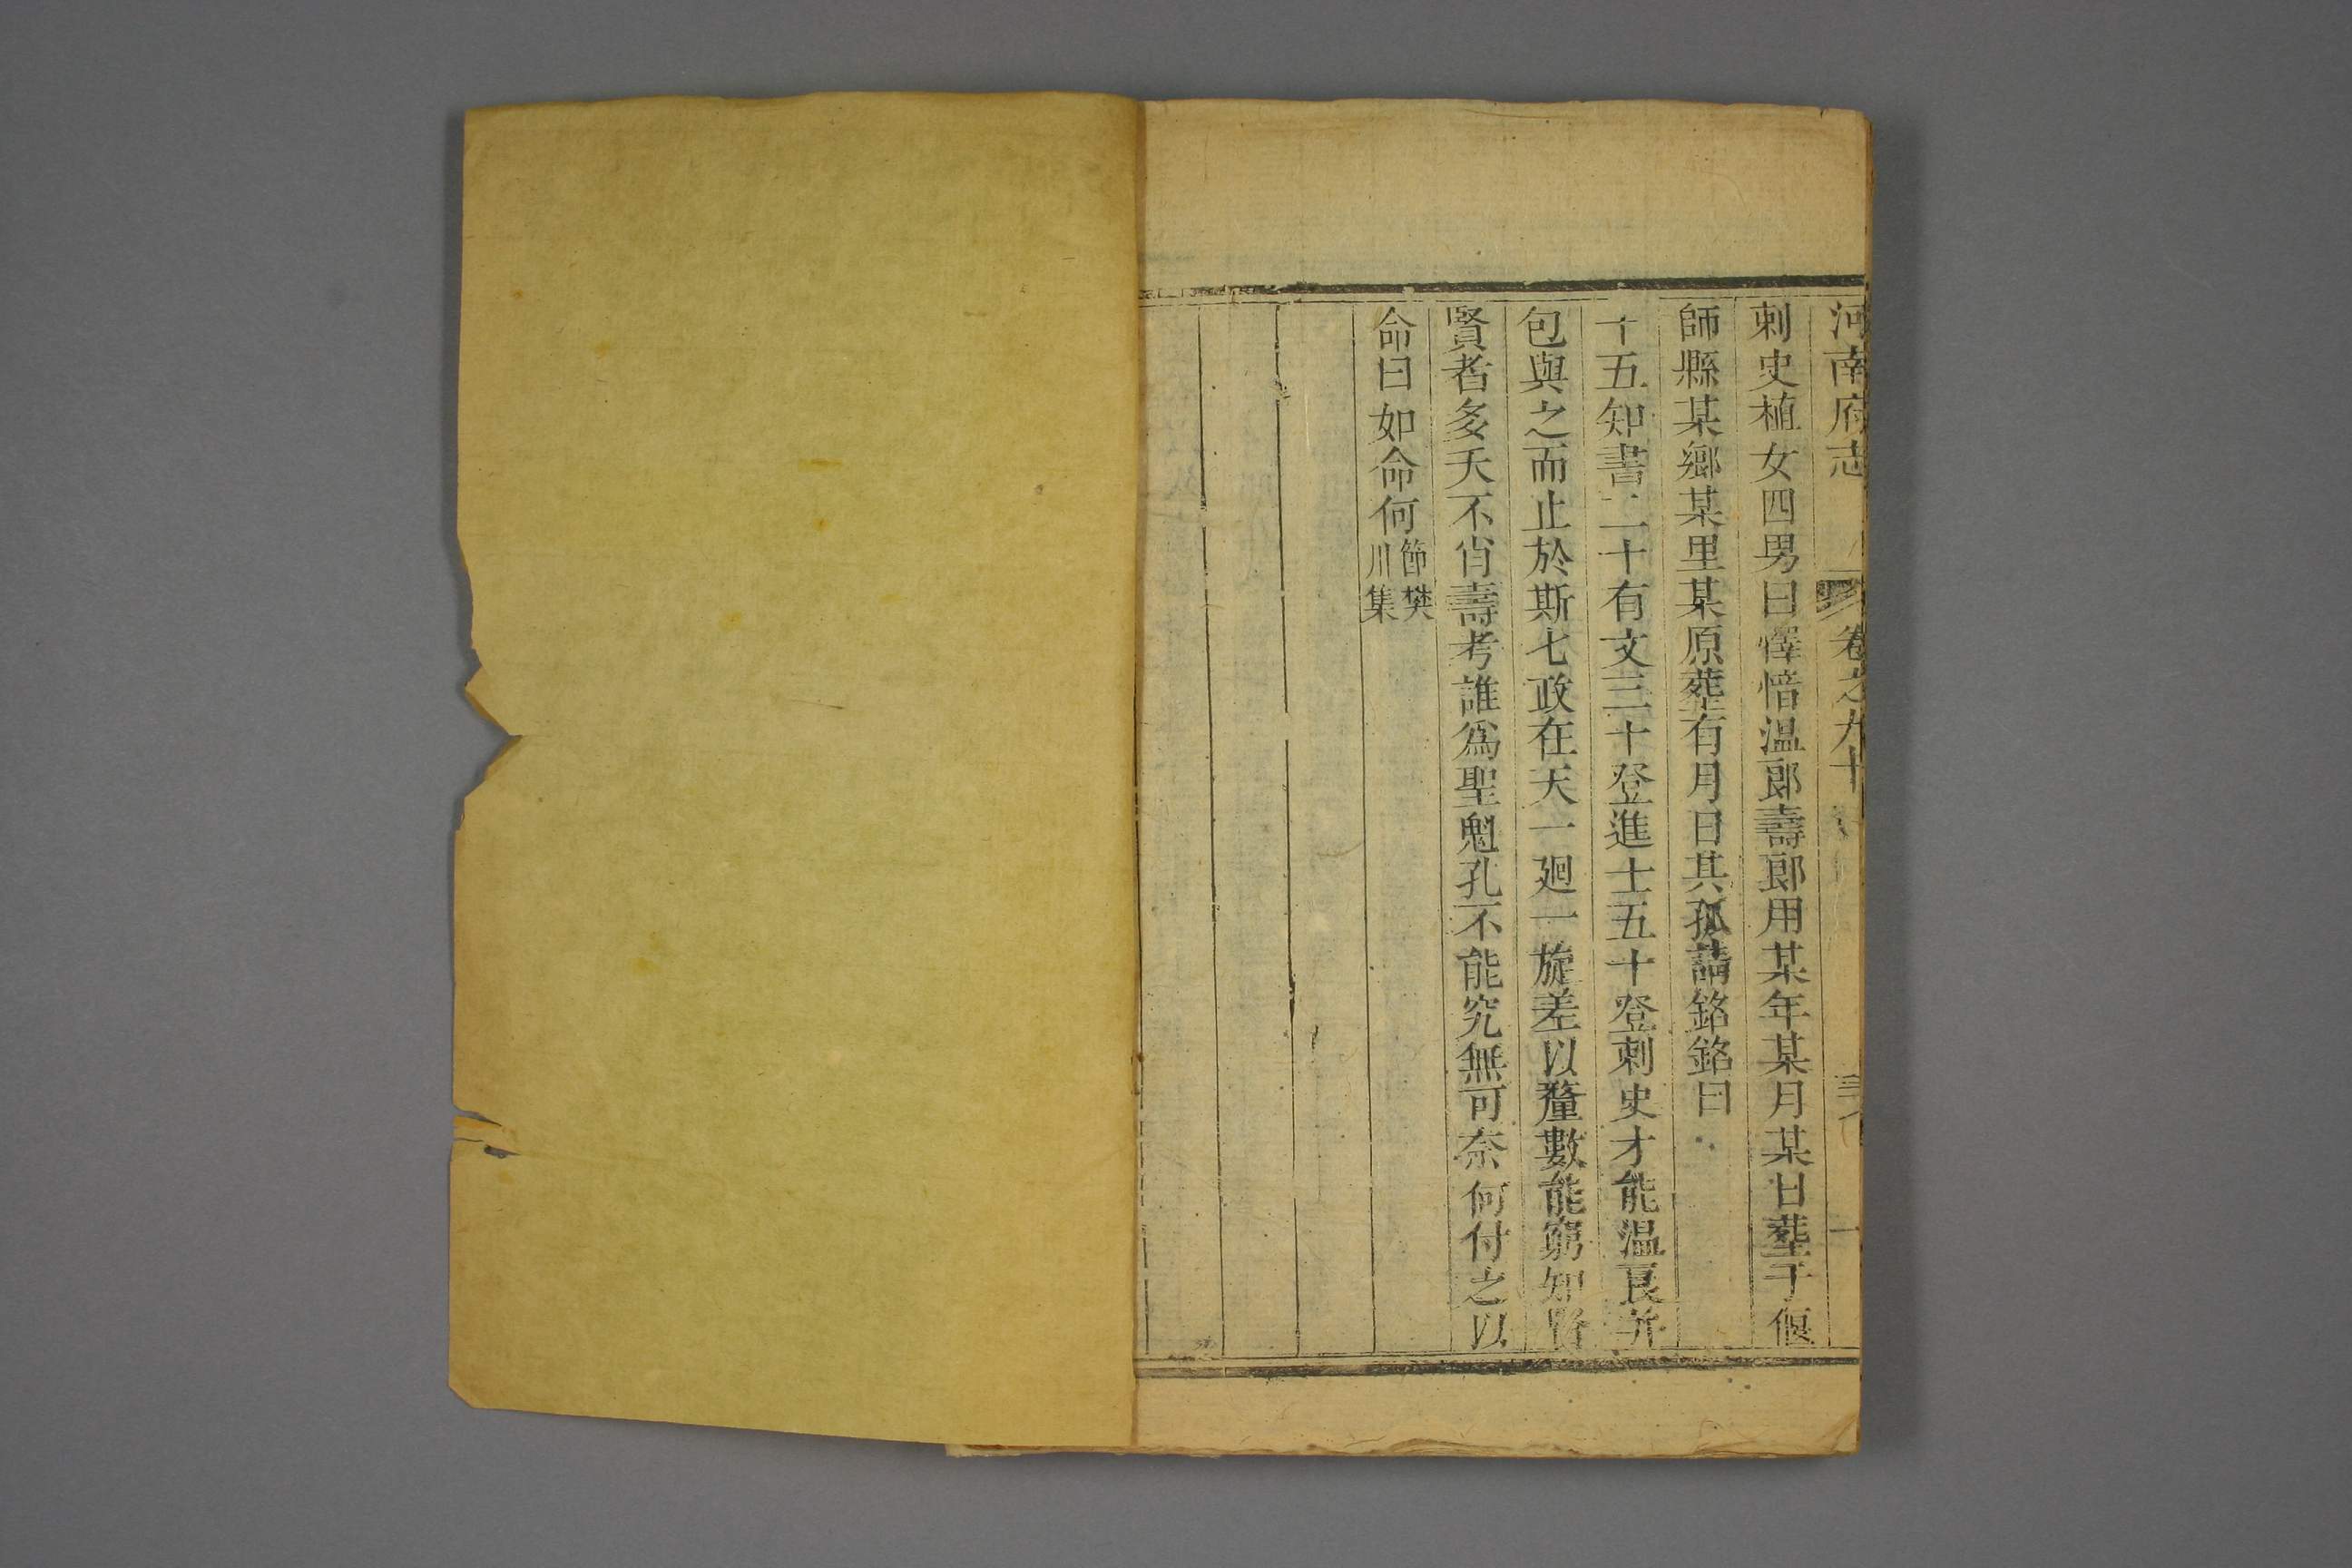 河南府志 卷之九十
刺史植女四男曰懌愔溫郎壽郎用某年某月某日葬于偃
師縣某鄉某里某原葬有月日其孤請銘銘曰
十五知書二十有文三十登進士五十登刺史才能溫良并
包與之而止於斯七政在天一廻一旋差以釐數能窮知賢
賢者多夭不肖壽考誰爲聖魁孔不能究無可奈何付之以
命曰如命何
節樊
川集